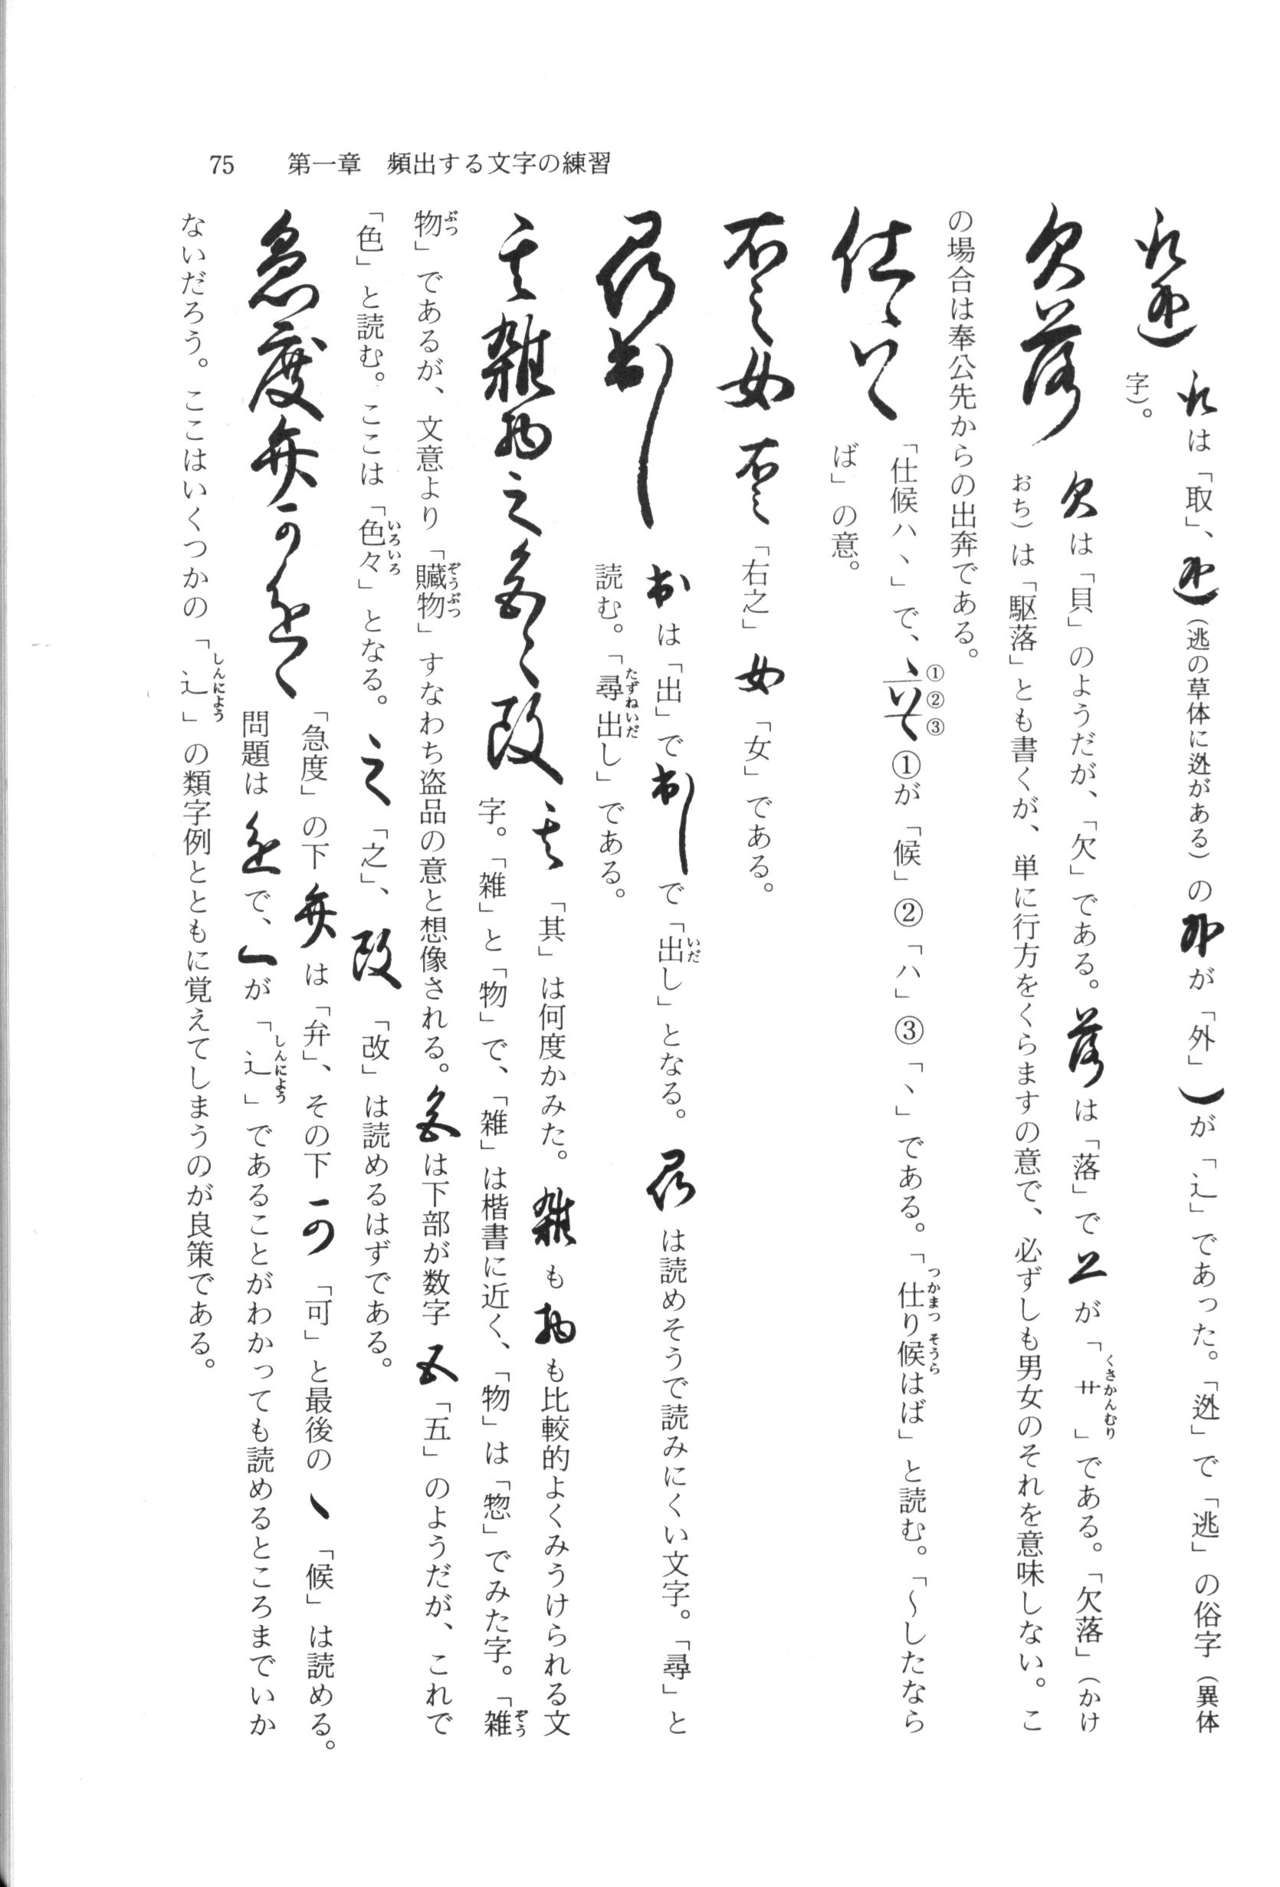 75　第一章　頻出する文字の練習
は「取」、(逃の草体に迯がある)のが「外」が「辶」であった。「迯」で「逃」の俗字(異体
字)。
欠落
欠は「貝」のようだが、「欠」である。落は「落」でが「艹」である。「欠落」(かけ
おち)は「駆落」とも書くが、単に行方をくらますの意で、必ずしも男女のそれを意味しない。こ
の場合は奉公先からの出奔である。
「仕候ハヽ」で、①②③①が「候」②「ハ」③「ヽ」である。「仕り候はば」と読む。「〜したなら
ば」の意。
右之女
右之「右之」女「女」である。
尋出し
出は「出」で出しで「出し」となる。尋は読めそうで読みにくい文字。「尋」と
読む。「尋出し」である。
其雑物之色々改
其「其」は何度かみた。雑も物も比較的よくみうけられる文
字。「雑」と「物」で、「雑」は楷書に近く、「物」は「惣」でみた字。「雑
物」であるが、文意より「贓物」すなわち盗品の意と想像される。色は下部が数字五「五」のようだが、これで
「色」と読む。ここは「色々」となる。之「之」、改「改」は読めるはずである。
急度弁可
「急度」の下弁は「弁」、その下可「可」と最後の「候」は読める。
問題はで、が「辶」であることがわかっても読めるところまでいか
ないだろう。ここはいくつかの「辶」の類字例とともに覚えてしまうのが良策である。